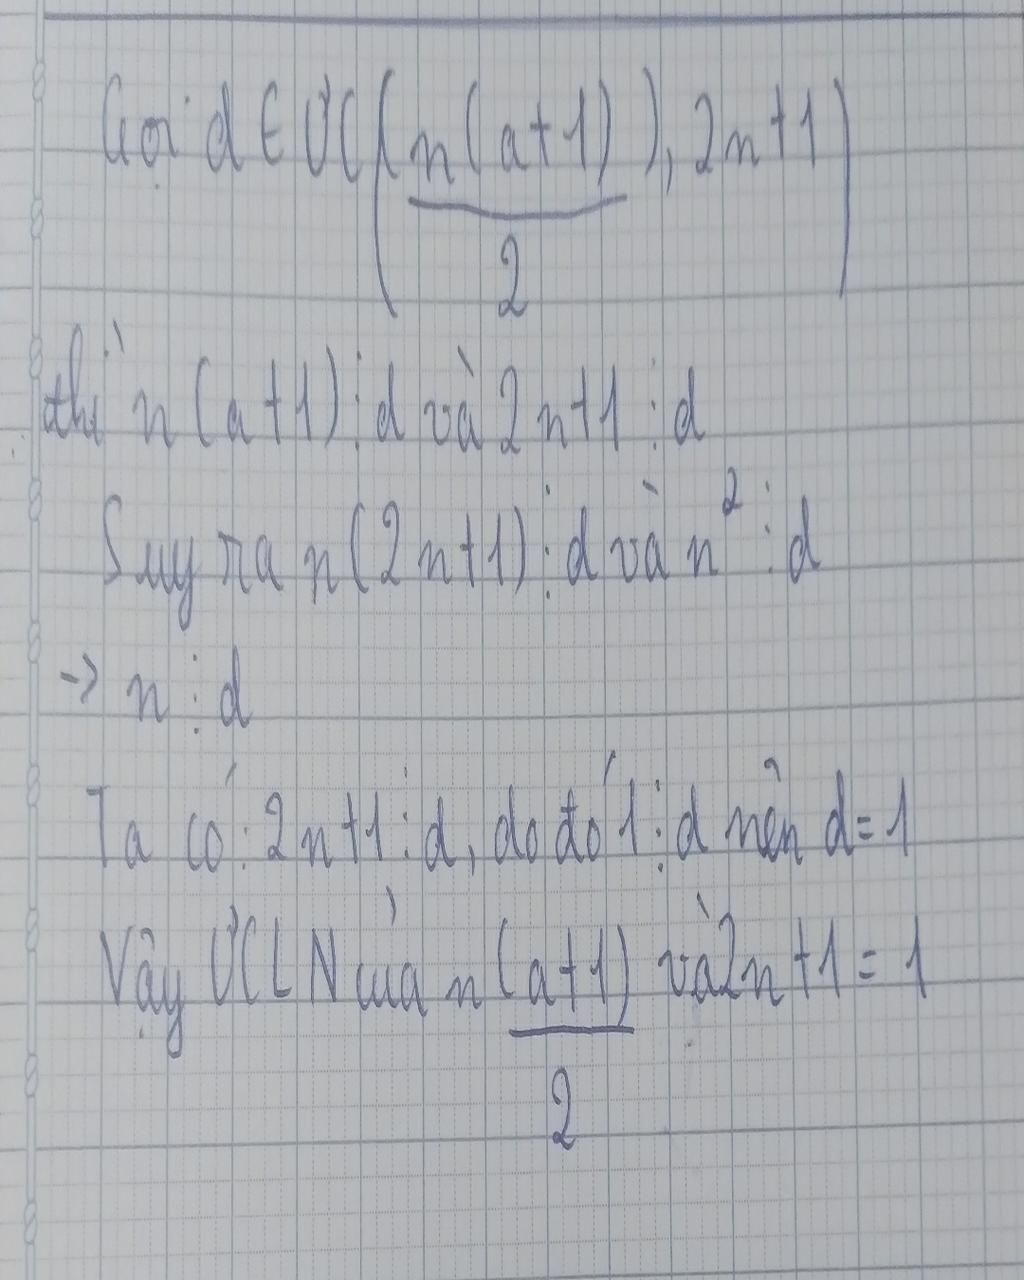 Gọi d ∈ ƯC((n(a+1))/2, 2n+1)
thì n(a+1)⋮d và 2n+1⋮d
Suy ra n(2n+1)⋮d và n²⋮d
-> n⋮d
Ta có: 2n+1⋮d, do đó 1⋮d nên d=1
Vậy ƯCLN của n(a+1)/2 và 2n+1=1